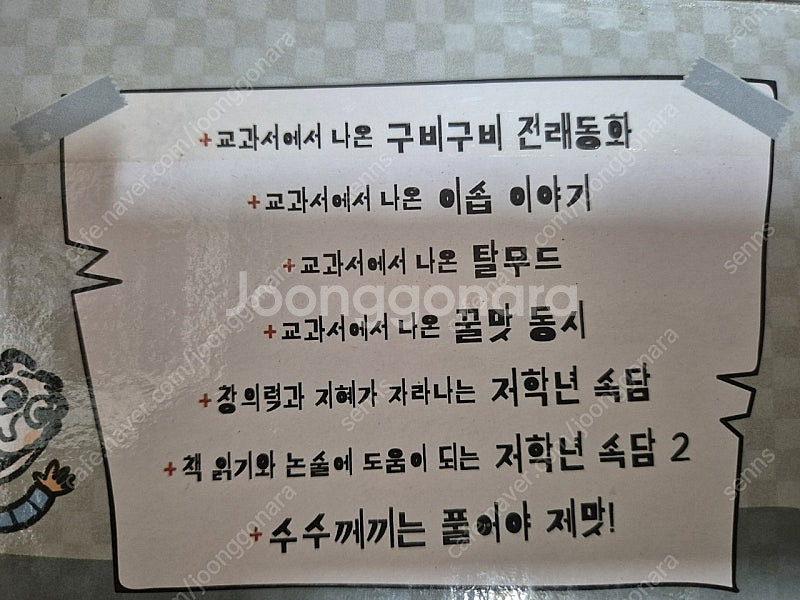 +교과서에서 나온 구비구비 전래동화
+교과서에서 나온 이솝 이야기
+교과서에서 나온 탈무드
Joonggonara
+교과서에서 나온 꿀맛 동시
+창의력과 지혜가 자라나는 저학년 속담
+책 읽기와 논술에 도움이 되는 저학년 속담 2
+수수께끼는 풀어야 제맛!
cafe.naver.com/joonggonara
senns